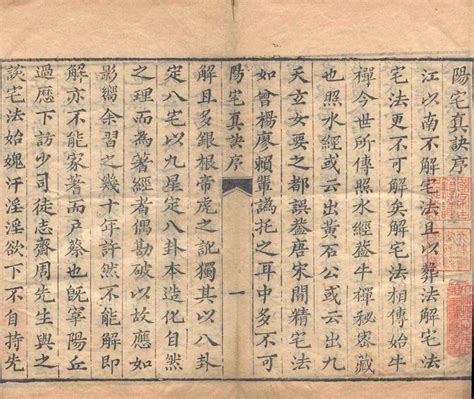 陽宅真訣序
江以南不解宅法且以葬法解宅法
宅法更不可解矣解宅法相傳始牛
禪今世所傳照水經盤牛禪秘密藏
也照水經或云出黃石公或云出九
天玄女要之都誤盤唐宋間精宅法
如曾楊廖賴輩譌托之耳中多不可
陽宅真訣序
一
解且多銀根帝虎之訛獨其以八卦
定八宅以九星定八卦本造化自然
之理而為著經者偶勘破以故應如
影嚮余習之幾十年許然不能解即
解亦不能家著而戶蔡也既宰陽丘
過歷下訪少司徒志齋周先生與之
談宅法始媿汗淫淫欲下不自持先